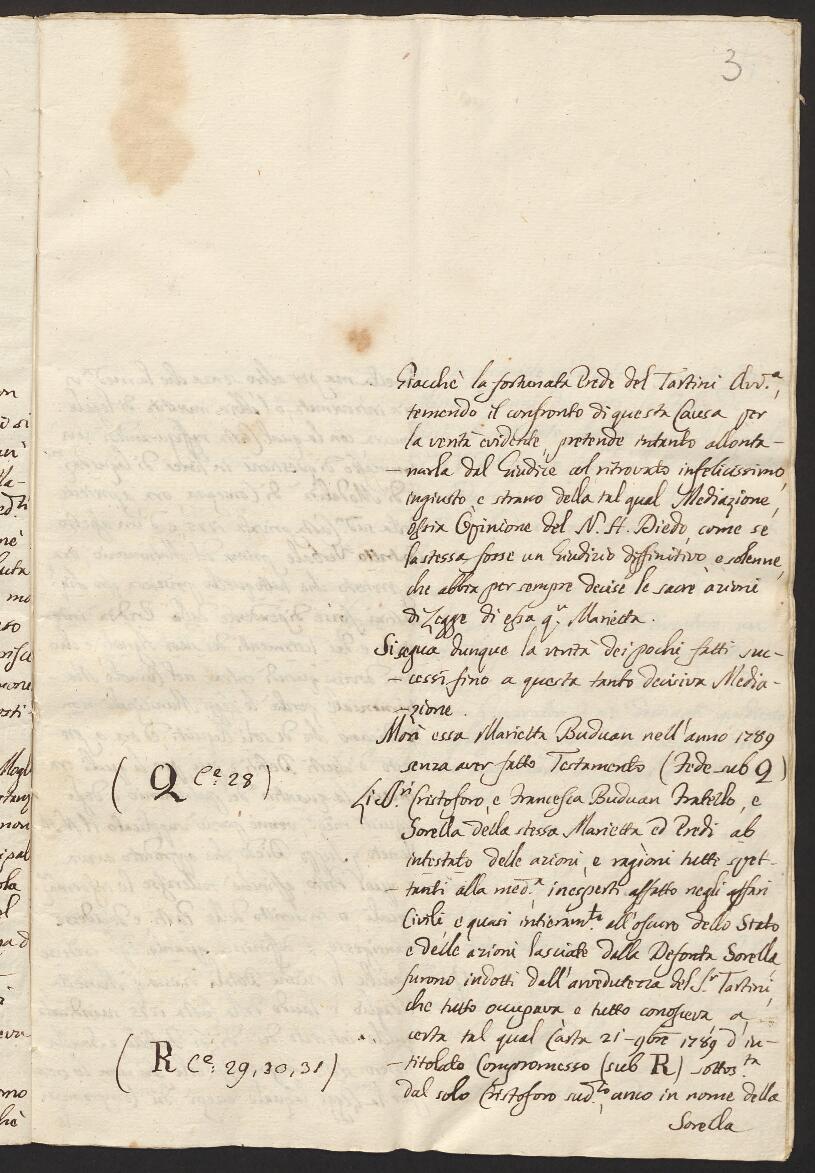 3
Giacchè la fortunata Erede del Tartini Avv.a,
temendo il confronto di questa Causa per
la verità evidente, pretende intanto allonta-
-narla dal Giudice col ritrovato infelicissimo,
ingiusto e strano della tal qual Mediazione,
ossia Opinione del N. H. Diedo, come se
la stessa fosse un Giudizio diffinitivo, e solenne,
che abbia per sempre decise le sacre azioni
di Legge di essa q.m Marietta.
Si segua dunque la verità dei pochi fatti suc-
-cessi fino a questa tanto decisiva Media-
-zione.
Morì essa Marietta Buduan nell'anno 1789
senza aver fatto Testamento (Fede sub Q)
( Q C.e: 28 )
Li Cristoforo, e Francesca Buduan Fratello, e
Sorella della stessa Marietta ed Eredi ab
intestato delle azioni, e ragioni tutte spet-
-tanti alla med.a, inesperti affatto negli affari
Civili, e quasi intieram.te all'oscuro dello Stato
e delle azioni lasciate dalla Defonta Sorella,
furono indotti dall'avvedutezza del S.r Tartini,
che tutto occupava, e tutto conosceva, a
certa tal qual Carta 21 9bre 1789 d'in-
-titolato Compromesso (sub R) sottos.ta
( R C.e: 29, 30, 31 )
dal solo Cristoforo sud.to, anco in nome della
Sorella